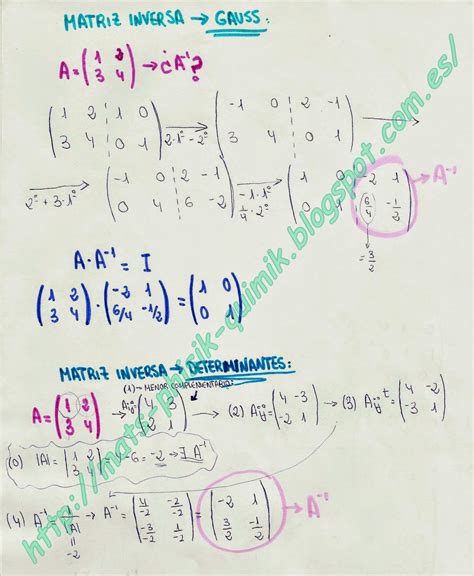 MATRIZ INVERSA → GAUSS:
A = (1 2 / 3 4) → ¿A⁻¹?
(1 2 ¦ 1 0 / 3 4 ¦ 0 1) 2·1º-2º → (-1 0 ¦ 2 -1 / 3 4 ¦ 0 1) →
2º+3·1º → (-1 0 ¦ 2 -1 / 0 4 ¦ 6 -2) -1·1º 1/4·2º → (1 0 ¦ -2 1 / 0 1 ¦ 6/4 -1/2) → A⁻¹
= 3/2
A·A⁻¹ = I
(1 2 / 3 4) · (-2 1 / 6/4 -1/2) = (1 0 / 0 1)
MATRIZ INVERSA → DETERMINANTES:
(1) → MENOR COMPLEMENTARIO
A = (1 2 / 3 4) Aij = (4 3 / 2 1) → (2) Aij = (4 -3 / -2 1) → (3) Aij^t = (4 -2 / -3 1)
(0) |A| = |1 2 / 3 4| = 4-6 = -2 → ∃ A⁻¹
(4) A⁻¹ = 1/|A| → A⁻¹ = (4/-2 -2/-2 / -3/-2 1/-2) = (-2 1 / 3/2 -1/2) → A⁻¹
= -2
http://mats-phisik-quimik.blogspot.com.es/